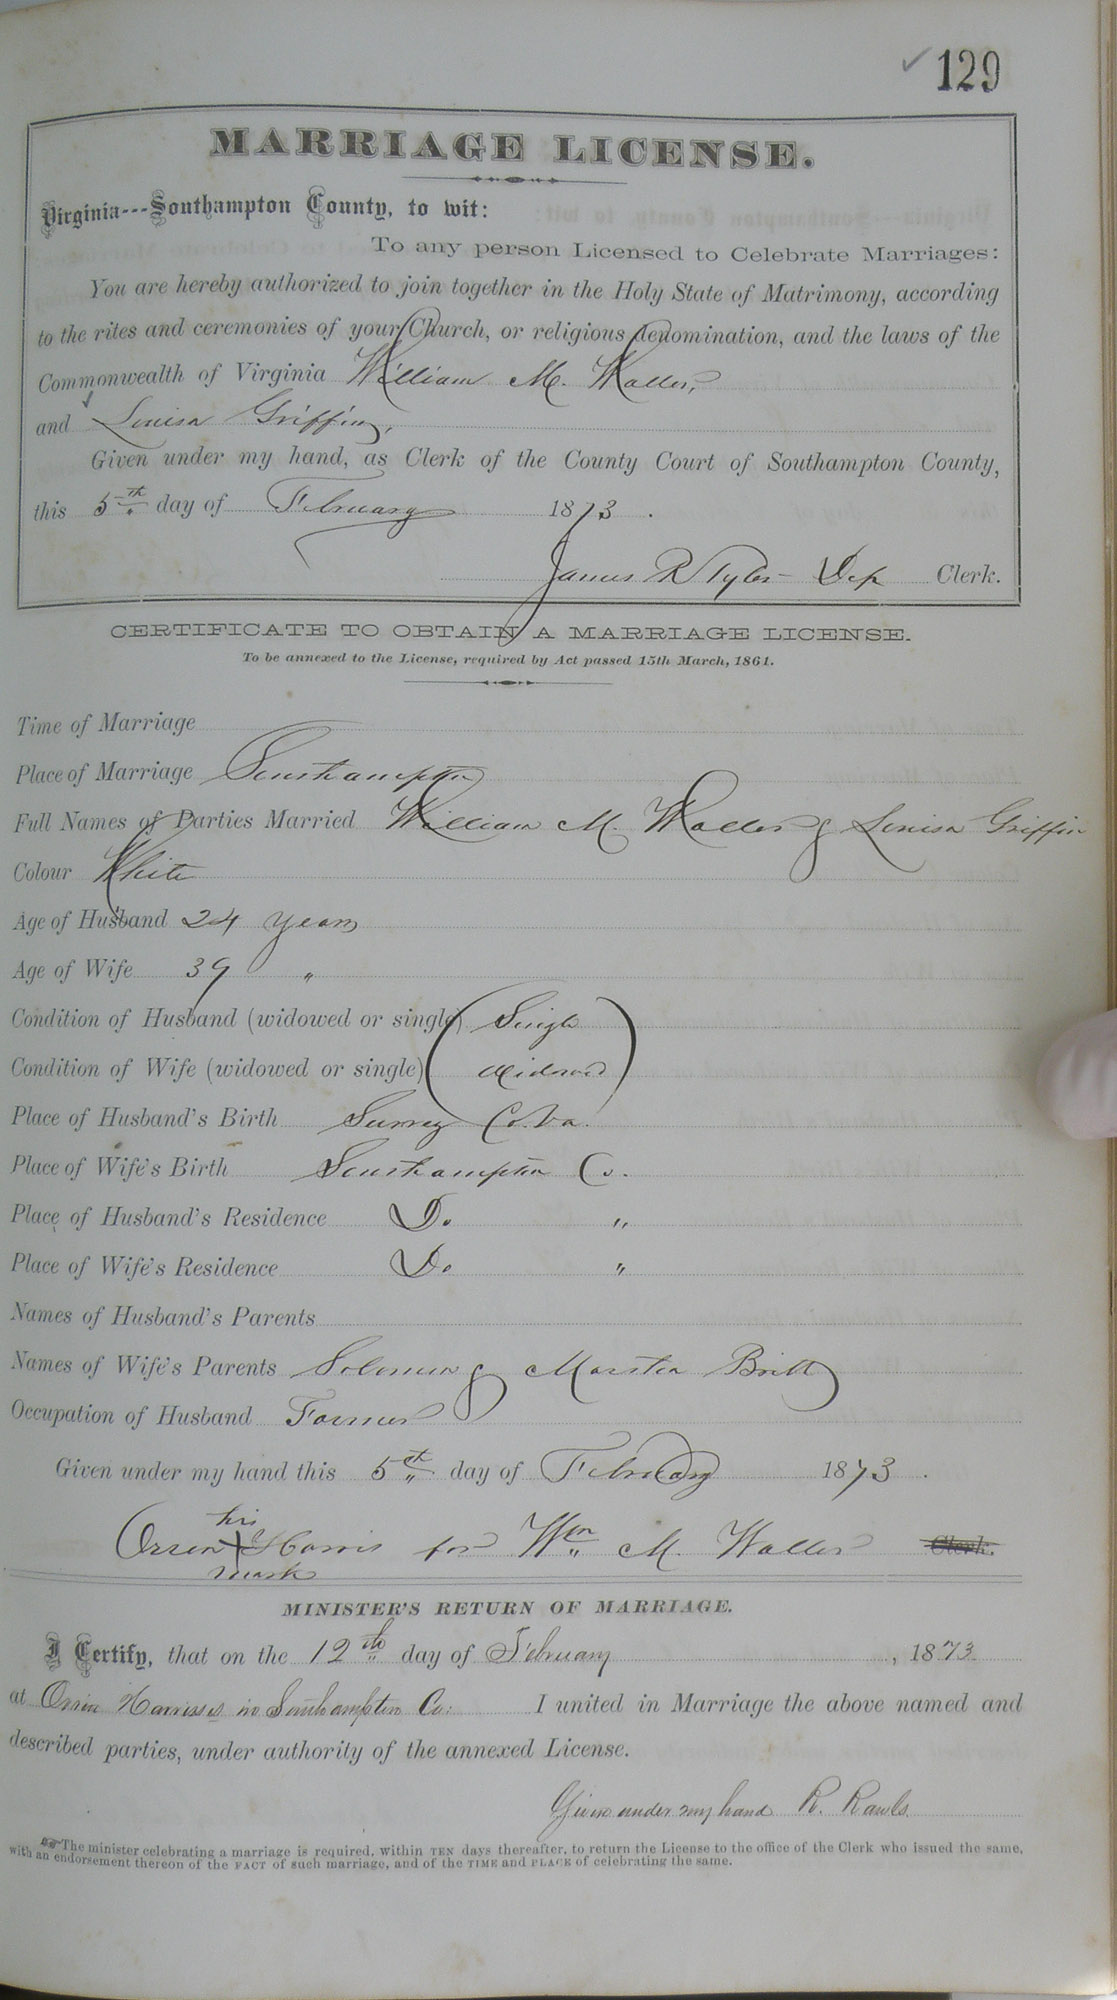 129
MARRIAGE LICENSE.
Virginia---Southampton County, to wit:
To any person Licensed to Celebrate Marriages:
You are hereby authorized to join together in the Holy State of Matrimony, according
to the rites and ceremonies of your Church, or religious denomination, and the laws of the
Commonwealth of Virginia William M. Waller,
and Louisa Griffin,
Given under my hand, as Clerk of the County Court of Southampton County,
this 5th day of February 1873.
James R Tyler - Dep Clerk.
CERTIFICATE TO OBTAIN A MARRIAGE LICENSE.
To be annexed to the License, required by Act passed 15th March, 1861.
Time of Marriage
Place of Marriage Southampton
Full Names of Parties Married William M. Waller & Louisa Griffin
Colour White
Age of Husband 24 years
Age of Wife 39 "
Condition of Husband (widowed or single) Single
Condition of Wife (widowed or single) Widowed
Place of Husband's Birth Surrey Co. Va.
Place of Wife's Birth Southampton Co.
Place of Husband's Residence Do "
Place of Wife's Residence Do "
Names of Husband's Parents
Names of Wife's Parents Solomon & Martha Britt
Occupation of Husband Farmer
Given under my hand this 5th day of February 1873.
his
Orren X Harris for Wm M. Waller Clerk.
mark
MINISTER'S RETURN OF MARRIAGE.
I Certify, that on the 12th day of February, 1873
at Orrin Harrisses in Southampton Co: I united in Marriage the above named and
described parties, under authority of the annexed License.
Given under my hand R. Rawls
The minister celebrating a marriage is required, within TEN days thereafter, to return the License to the office of the Clerk who issued the same,
with an endorsement thereon of the FACT of such marriage, and of the TIME and PLACE of celebrating the same.